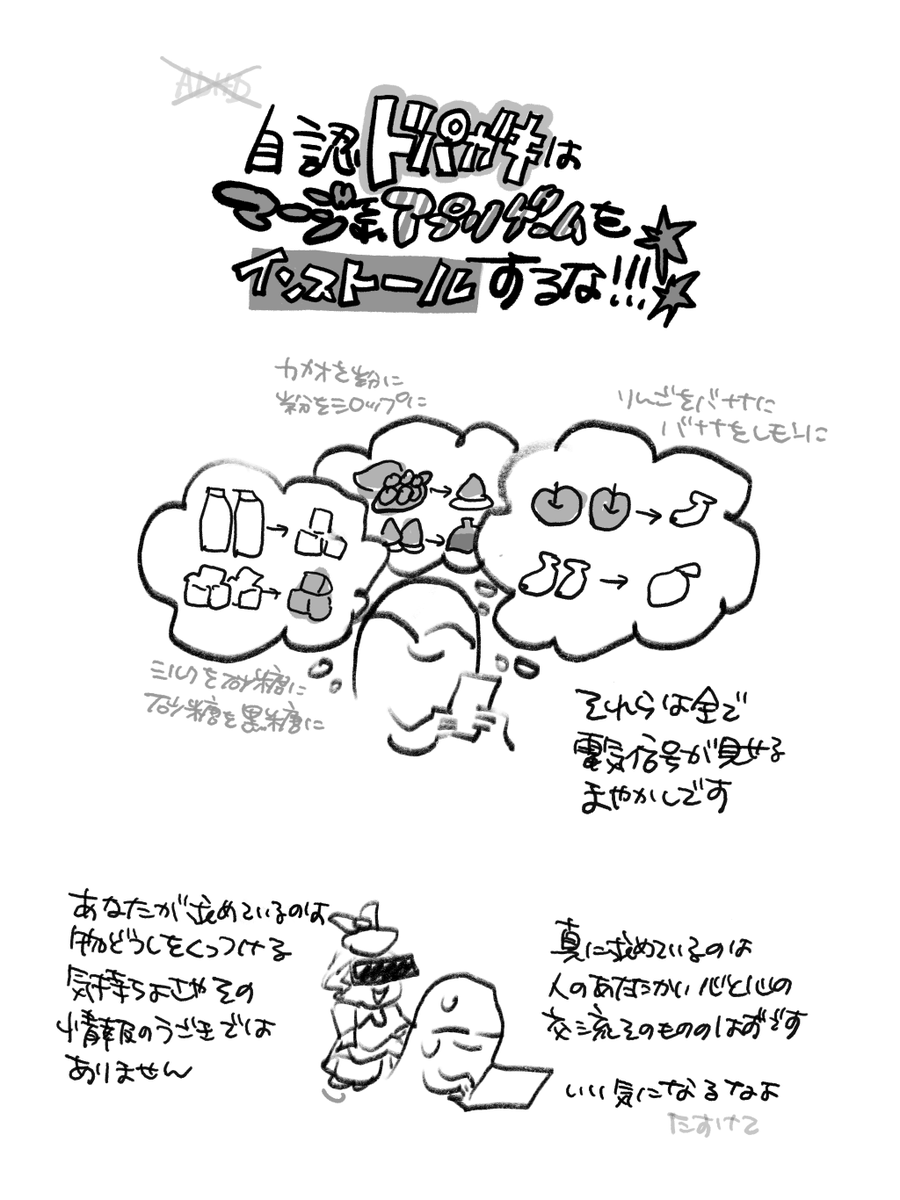 ADHD
自認ドパガキは
マージ系アプリゲームを
インストールするな!!!
カカオを粉に
粉をシロップに
りんごをバナナに
バナナをレモンに
ミルクを砂糖に
砂糖を黒糖に
それらは全て
電気信号が見せる
まやかしです
あなたが求めているのは
物どうしをくっつける
気持ちよさやその
情報のうごきでは
ありません
真に求めているのは
人のあたたかい心と心の
交流そのもののはずです
いい気になるなよ
たすけて